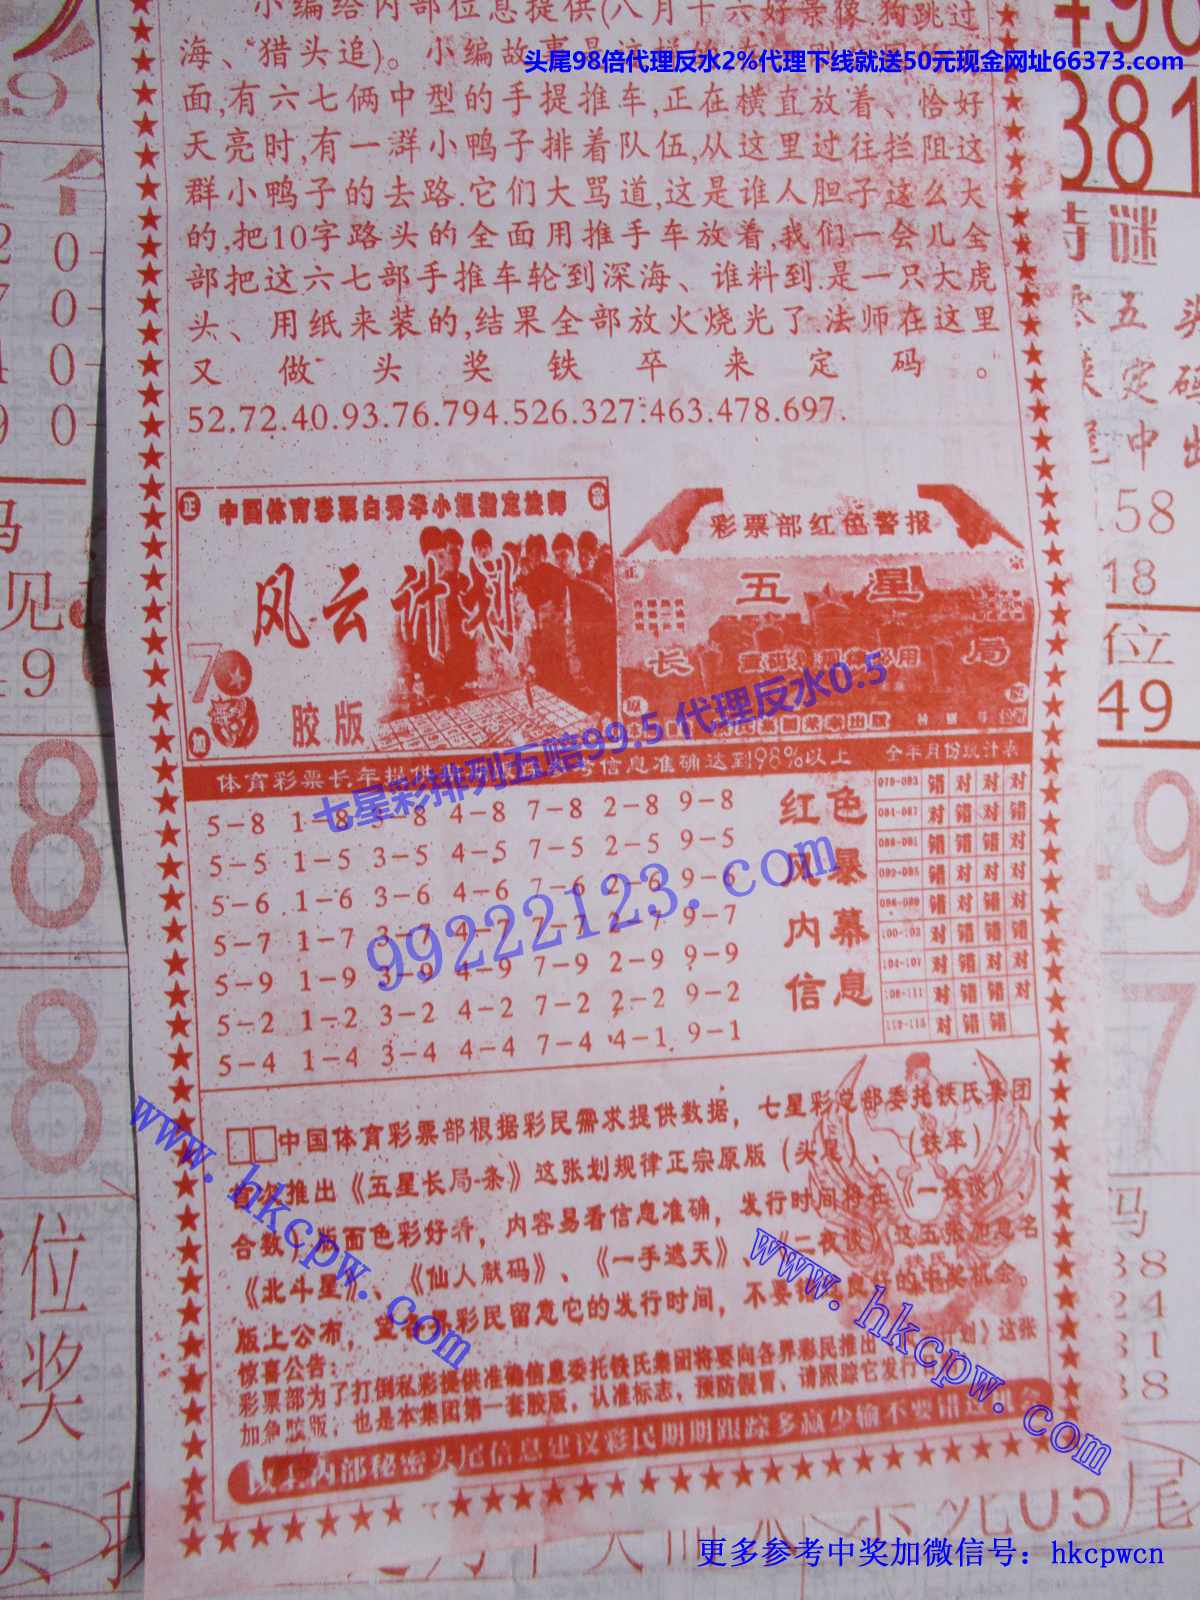 小编给内部位息提供(八月十六好景像.狗跳过
海、猎头追)。小编故事是这样
头尾98倍代理反水2%代理下线就送50元现金网址66373.com
面,有六七俩中型的手提推车,正在横直放着、恰好
天亮时,有一群小鸭子排着队伍,从这里过往拦阻这
群小鸭子的去路.它们大骂道,这是谁人胆子这么大
的,把10字路头的全面用推手车放着,我们一会儿全
部把这六七部手推车轮到深海、谁料到.是一只大虎
头、用纸来装的,结果全部放火烧光了.法师在这里
又做头奖铁卒来定码。
52.72.40.93.76.794.526.327.463.478.697.
正
中国体育彩票白秀华小姐指定法师
宗
风云计划
胶版
彩票部红色警报
正
宗
五星
长
局
体育彩票长年提供
信息准确达到98%以上
全年月份统计表
七星彩排列五赔99.5 代理反水0.5
5-8 1-8 3-8 4-8 7-8 2-8 9-8
5-5 1-5 3-5 4-5 7-5 2-5 9-5
5-6 1-6 3-6 4-6 7-6 2-6 9-6
5-7 1-7 3-7 4-7 7-7 2-7 9-7
5-9 1-9 3-9 4-9 7-9 2-9 9-9
5-2 1-2 3-2 4-2 7-2 2-2 9-2
5-4 1-4 3-4 4-4 7-4 4-1 9-1
99222123.com
红色
风暴
内幕
信息
错 对 对 对
对 错 对 错
错 错 错 对
错 对 对 对
错 对 对 错
对 错 错 错
对 错 对 对
对 错 错 对
对 错 错
中国体育彩票部根据彩民需求提供数据，七星彩总部委托铁氏集团
推出《五星长局-条》这张划规律正宗原版（头尾）、（铁率）、
合数）版面色彩好看，内容易看信息准确，发行时间将在《一夜谈》、
《北斗星》、《仙人献码》、《一手遮天》、《二夜谈》这五张加急名
版上公布，望各
彩民留意它的发行时间，不要错过良
的中奖机会。
惊喜公告：
彩票部为了打倒私彩提供准确信息委托铁氏集团将要向各界彩民推出
计划》这张
加急胶版，也是本集团第一套胶版，认准标志，预防假冒，请跟踪它发行
内部秘密头尾信息建议彩民期期跟踪多赢少输不要错过机会
www.hkcpw.com
www.hkcpw.com
381
谜
五 头
定 码
中 出
.58
18
位
49
9
7
码
见
9
8
8
位
奖
码
38
24
31
38
05尾
更多参考中奖加微信号：hkcpwcn